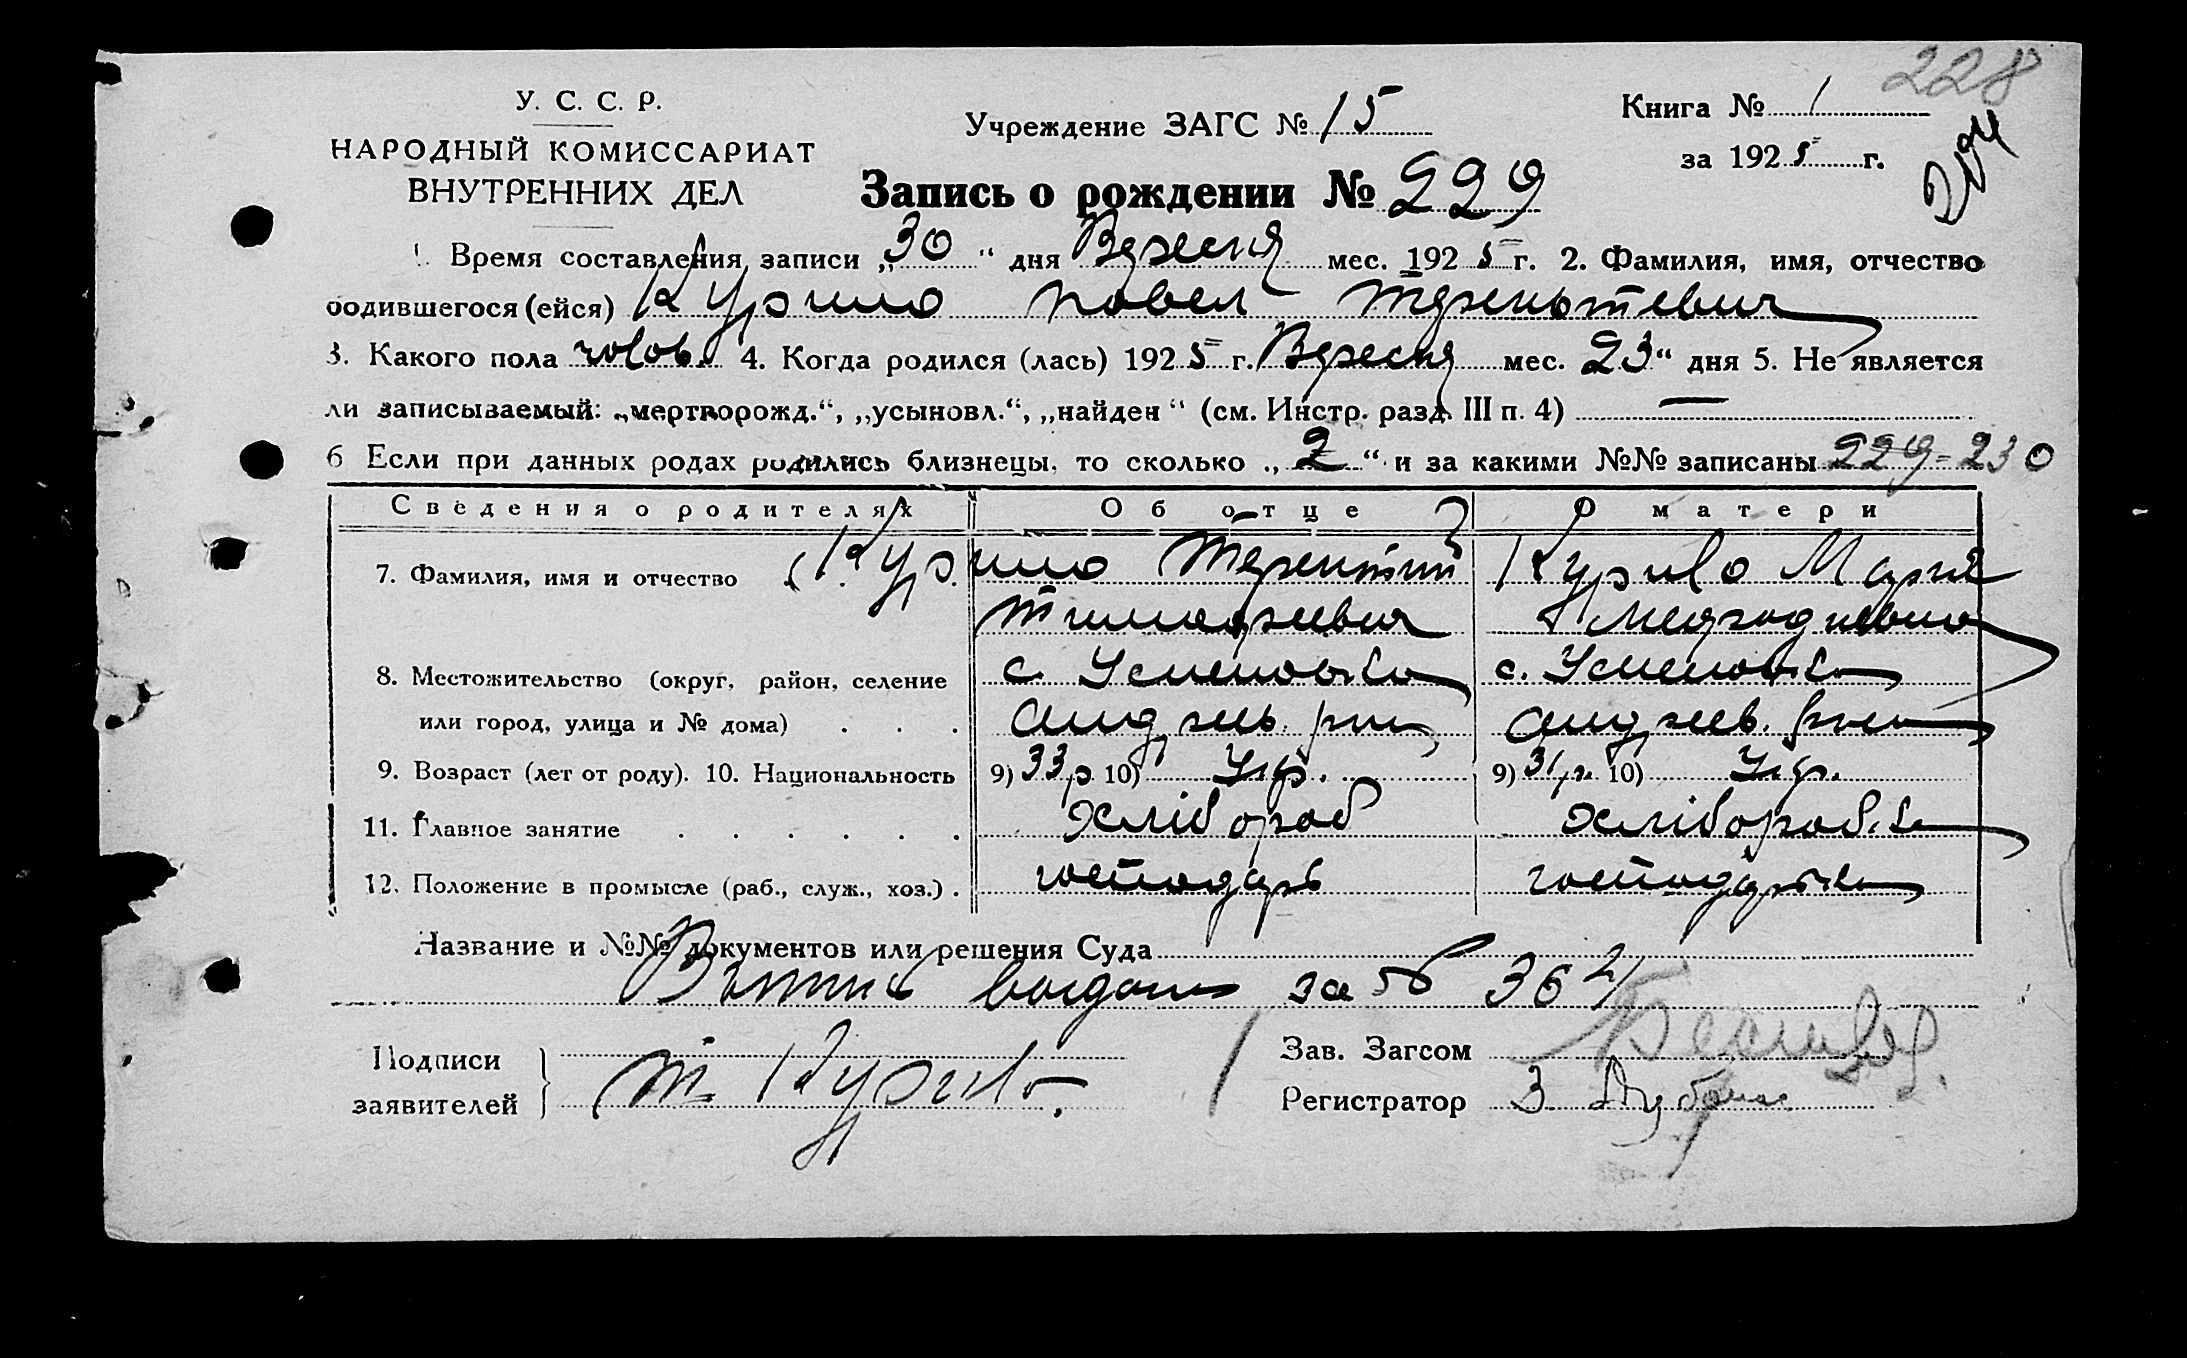 228
204
У. С. С. Р.
НАРОДНЫЙ КОМИССАРИАТ
ВНУТРЕННИХ ДЕЛ
Учреждение ЗАГС № 15
Книга № 1
за 1925 г.
Запись о рождении № 229
1. Время составления записи „30“ дня Вересня мес. 1925 г. 2. Фамилия, имя, отчество
родившегося (ейся) Курило Павел Терентьевич
3. Какого пола чолов. 4. Когда родился (лась) 1925 г. Вересня мес. 23“ дня 5. Не является
ли записываемый: „мертворожд.“, „усыновл.“, „найден“ (см. Инстр. разд. III п. 4) —
6 Если при данных родах родились близнецы, то сколько „2“ и за какими №№ записаны 229-230
Сведения о родителях Об отце О матери
7. Фамилия, имя и отчество Курило Терентий Курило Мария
Тимофеевич
8. Местожительство (округ, район, селение с. Успеновка с. Успеновка
или город, улица и № дома) Андреев. рна Андреев. рна
9. Возраст (лет от роду). 10. Национальность 9) 33 р. 10) Укр. 9) 31 р. 10) Укр.
11. Главное занятие хлібороб хліборобка
12. Положение в промысле (раб., служ., хоз.) господарь господарька
Название и №№ документов или решения Суда
за № 3621
Подписи заявителей Т Курило
Зав. Загсом
Регистратор З